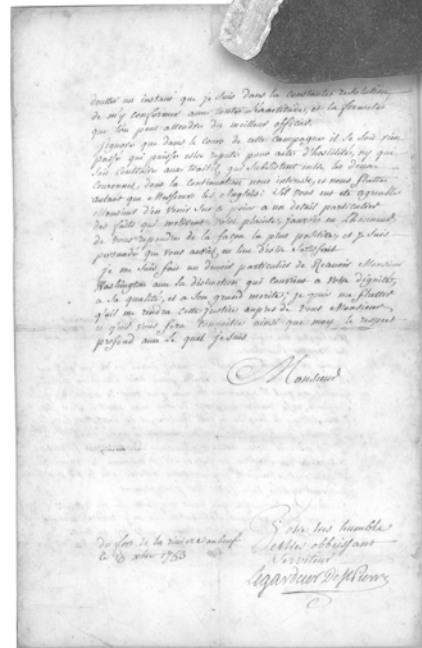 douter un instant que je suis dans la constante resolution
de m'y conformer avec toute l'exactitude, et la fermeté
que l'on peut attendre du meilleur officier.
J'ignore que dans le cours de cette campagne il se soit rien
passé qui puisse estre reputé pour acte d'hostilité, ny qui
soit contraire aux traités qui subsistent entre les deux
Couronnes, dont la continuation nous interesse, et nous flatte
autant que Messieurs les Anglois: Sil vous eut été agreable
Monsieur d'en venir sur a un detail particulier
des faits qui motivent votre plainte, j'aurois eu L'honneur
de vous repondre de la façon la plus positive, et je suis
persuadé que vous auriez eu lieu d'estre satisfait
je me suis fait un devoir particulier de Recevoir Monsieur
Washington avec la distinction qui convient a votre dignité,
a Sa qualité, et a son grand merite; je puis me flatter
qu'il me rendra cette justice aupres de vous Monsieur,
et qu'il vous fera connoitre ainsi que moy le respect
profond avec Le quel je suis
Monsieur
Votre tres humble
Et tres obbeissant
Serviteur
Legardeur De St Pierre
du fort de la riviere au beuf
le 15 xbre 1753